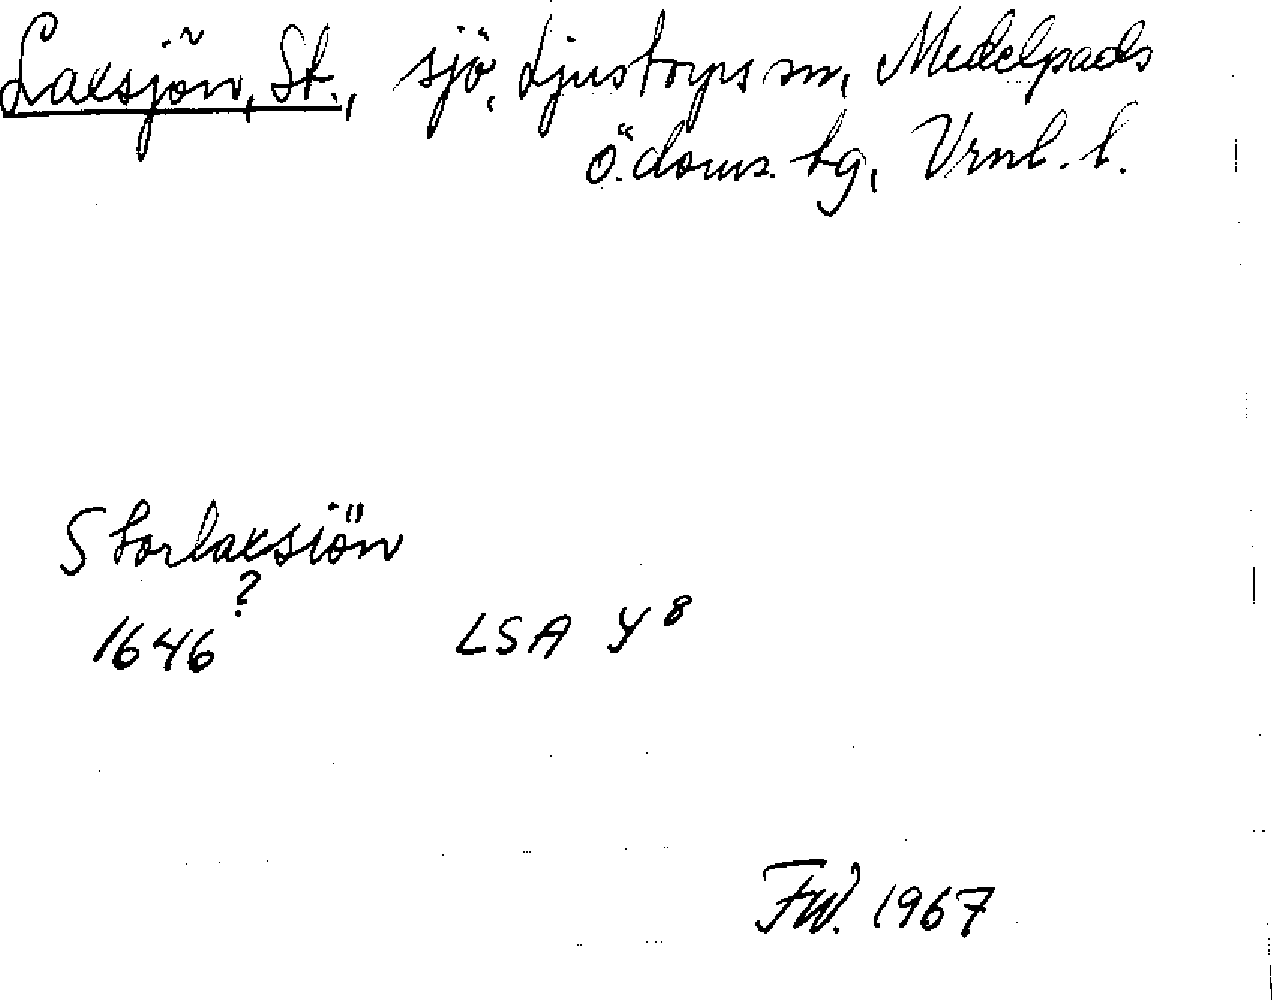 Laxsjön, St., sjö, Ljustorps sn, Medelpads
ö. doms. tg, Vrnl. l.
Storlaxsiön
?
1646 LSA Y 8
FW. 1967